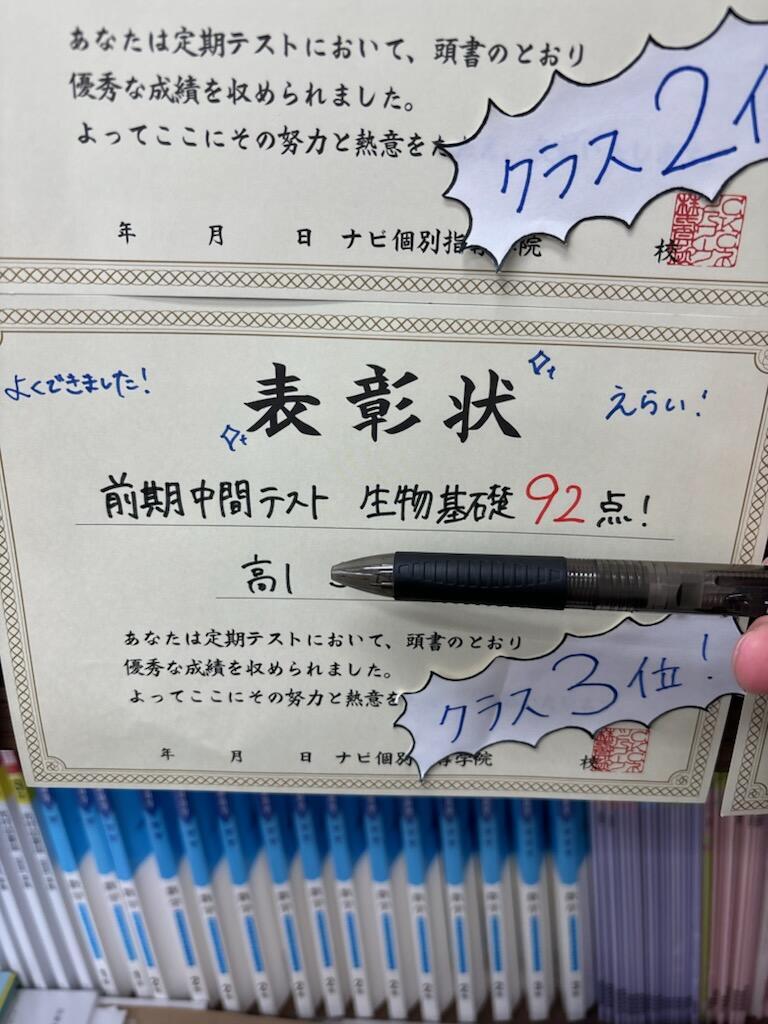 あなたは定期テストにおいて、頭書のとおり
優秀な成績を収められました。
よってここにその努力と熱意をた
クラス2
年 月 日 ナビ個別指導学院 校
よくできました!
表彰状
えらい!
前期中間テスト 生物基礎 92点!
高1
あなたは定期テストにおいて、頭書のとおり
優秀な成績を収められました。
よってここにその努力と熱意を
クラス3位!
年 月 日 ナビ個別指導学院 校